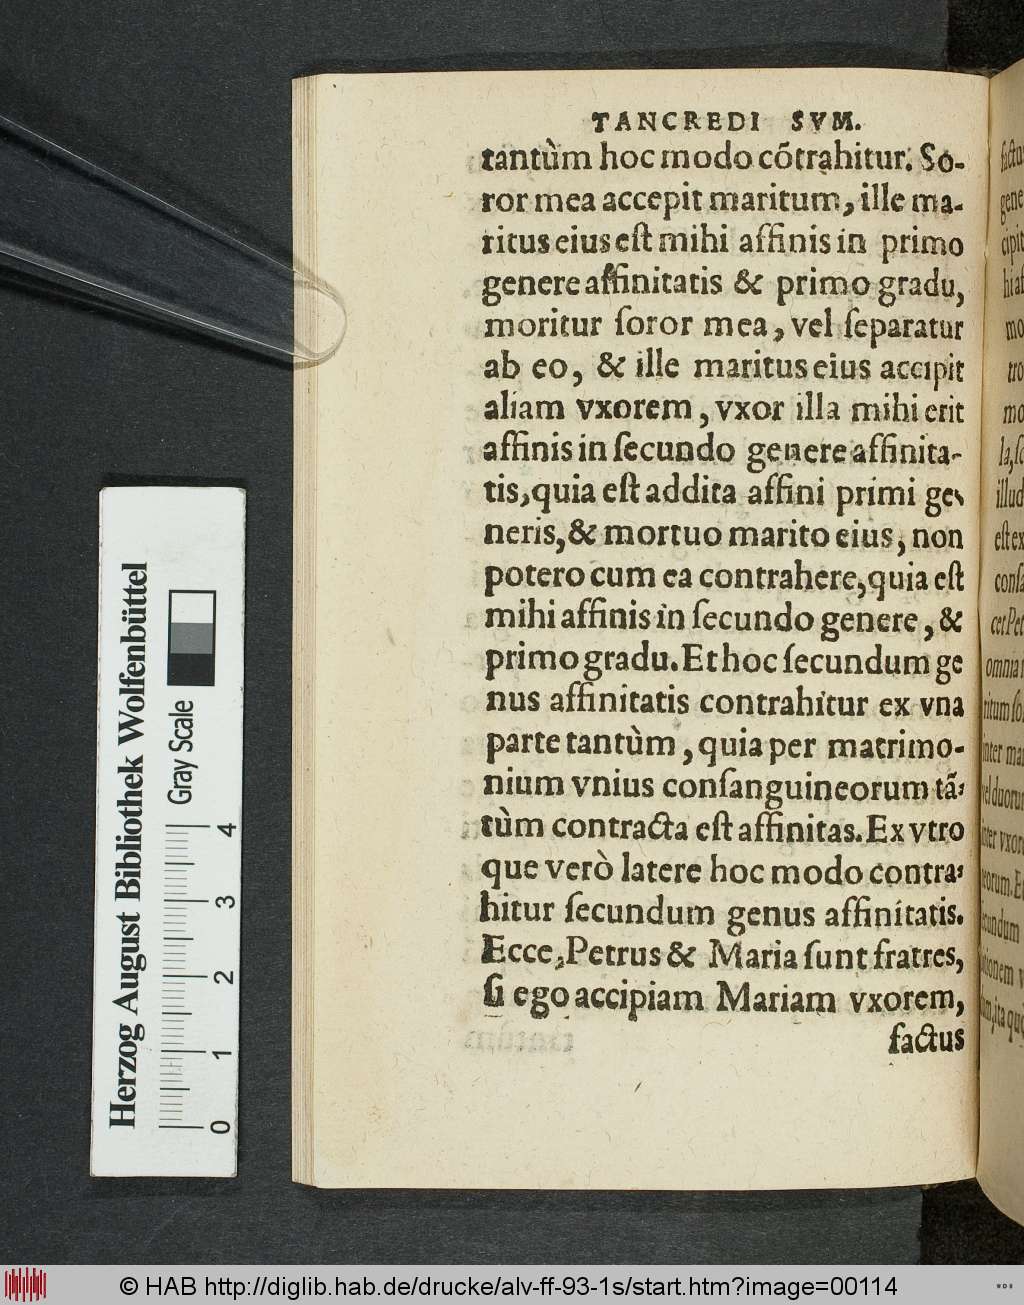 TANCREDI SVM.
tantùm hoc modo cõtrahitur. So-
ror mea accepit maritum, ille ma-
ritus eius eſt mihi affinis in primo
genere affinitatis & primo gradu,
moritur ſoror mea, vel ſeparatur
ab eo, & ille maritus eius accipit
aliam vxorem, vxor illa mihi erit
affinis in ſecundo genere affinita-
tis, quia eſt addita affini primi ge-
neris, & mortuo marito eius, non
potero cum ea contrahere, quia eſt
mihi affinis in ſecundo genere, &
primo gradu. Et hoc ſecundum ge
nus affinitatis contrahitur ex vna
parte tantùm, quia per matrimo-
nium vnius conſanguineorum tã-
tùm contracta eſt affinitas. Ex vtro
que verò latere hoc modo contra-
hitur ſecundum genus affinitatis.
Ecce, Petrus & Maria ſunt fratres,
ſi ego accipiam Mariam vxorem,
factus
Herzog August Bibliothek Wolfenbüttel
Gray Scale
0 1 2 3 4
© HAB http://diglib.hab.de/drucke/alv-ff-93-1s/start.htm?image=00114